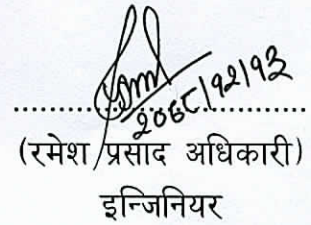 २०६८/१२/१३
(रमेश प्रसाद अधिकारी)
इन्जिनियर